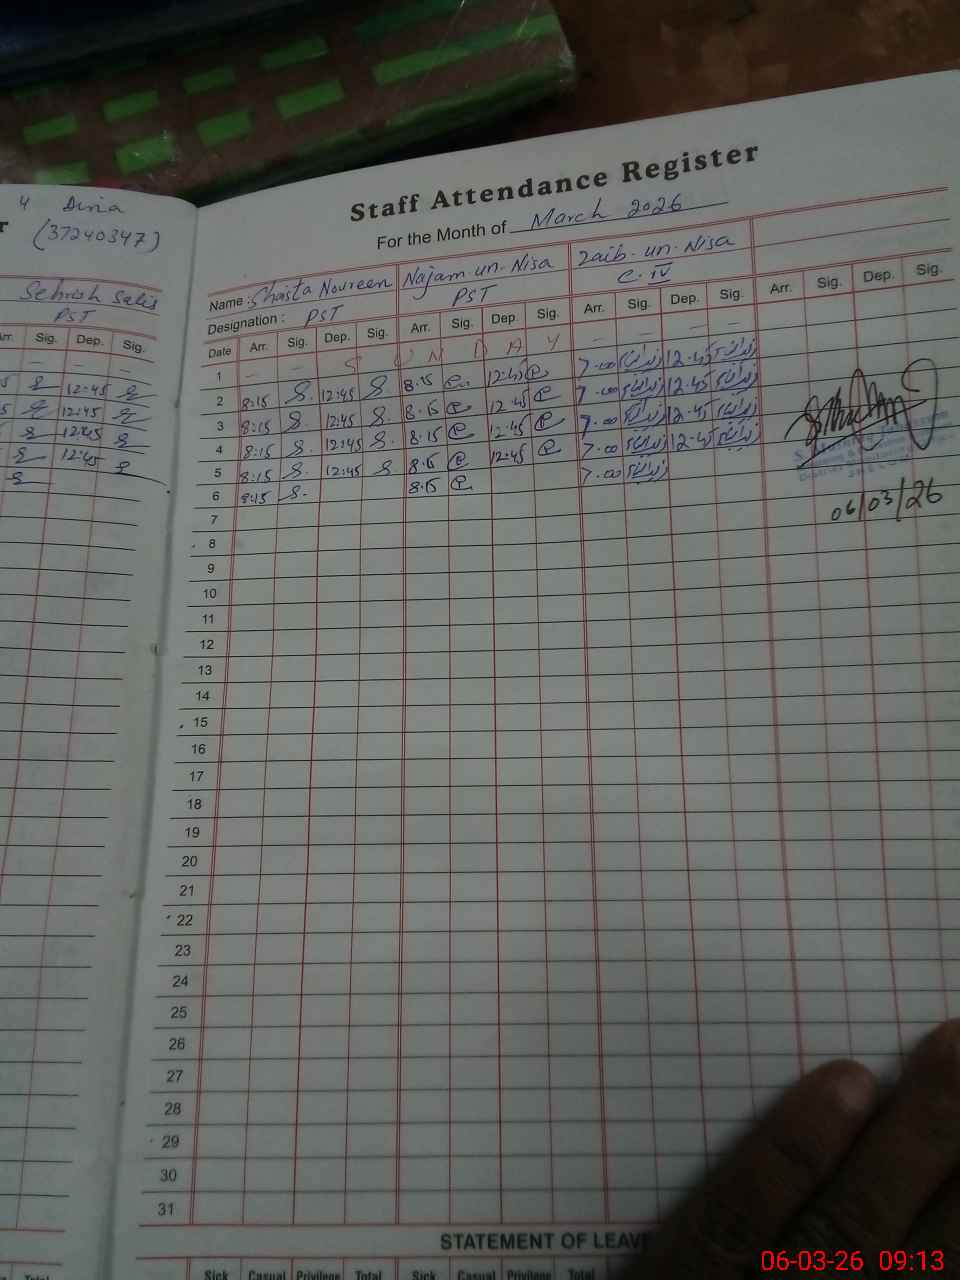 4 Dina
r
(37240347)
Staff Attendance Register
For the Month of March 2026
Sehrish Salis
PST
Arr. Sig. Dep. Sig.
12:45
12:45
12:45
12:45
Name : Shaista Noureen Najam-un-Nisa Zaib-un-Nisa
Designation : PST PST C-IV
Date Arr. Sig. Dep. Sig. Arr. Sig. Dep. Sig. Arr. Sig. Dep. Sig. Arr. Sig. Dep. Sig.
1 – – S U N D A Y – – – –
2 8:15 S. 12:45 S. 8:15 12:45 7.00 12.45
3 8:15 S. 12:45 S. 8:15 12:45 7.00 12.45
4 8:15 S. 12:45 S. 8:15 12:45 7.00 12.45
5 8:15 S. 12:45 S. 8:15 12:45 7.00 12.45
6 8:15 S. 8:15 7.00
06/03/26
7
8
9
10
11
12
13
14
15
16
17
18
19
20
21
22
23
24
25
26
27
28
29
30
31
STATEMENT OF LEAV
Total Sick Casual Privilege Total Sick Casual Privilege Total
06-03-26 09:13